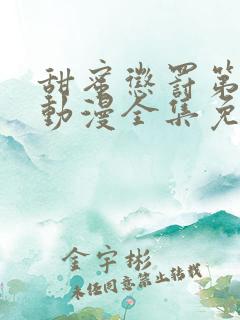 甜蜜懲罰第
動漫全集免
金宇彬
未经同意禁止转载